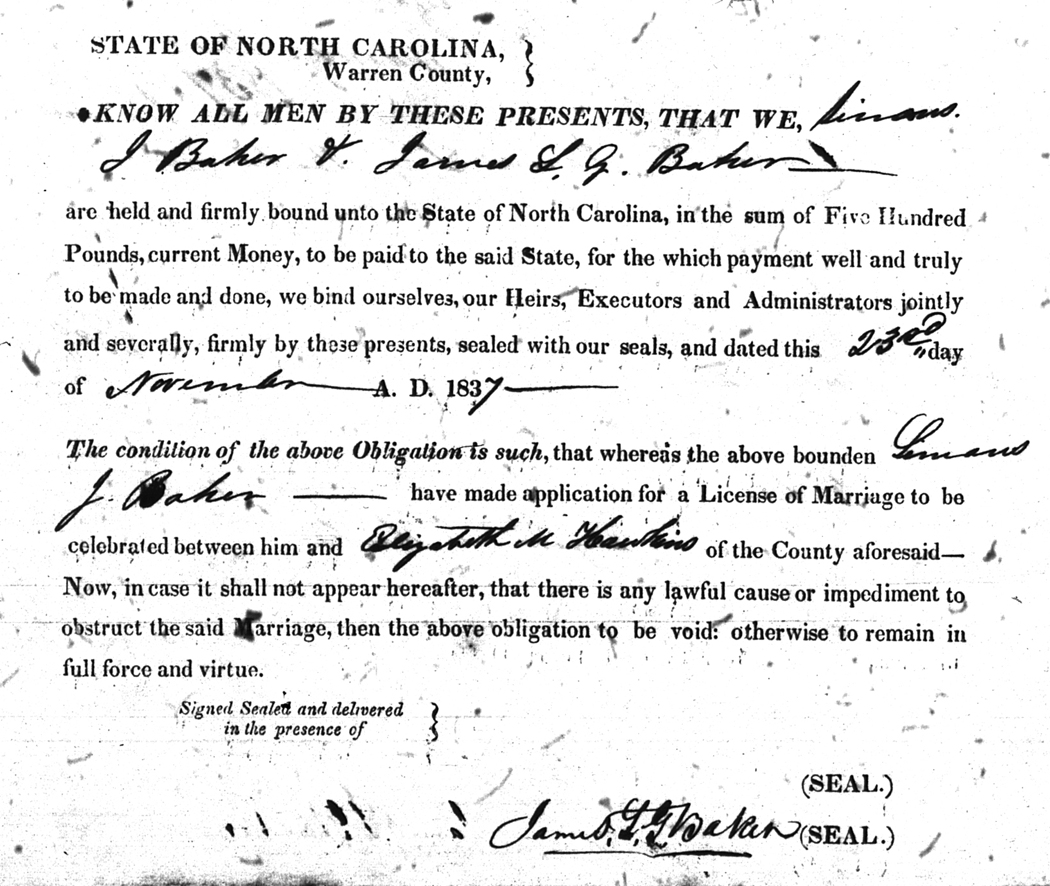 STATE OF NORTH CAROLINA, }
Warren County,
KNOW ALL MEN BY THESE PRESENTS, THAT WE,
J Baker & James L. G. Baker
are held and firmly bound unto the State of North Carolina, in the sum of Five Hundred
Pounds, current Money, to be paid to the said State, for the which payment well and truly
to be made and done, we bind ourselves, our Heirs, Executors and Administrators jointly
and severally, firmly by these presents, sealed with our seals, and dated this 23rd day
of November A. D. 1837
The condition of the above Obligation is such, that whereas the above bounden
J. Baker have made application for a License of Marriage to be
celebrated between him and Elizabeth M Hawkins of the County aforesaid—
Now, in case it shall not appear hereafter, that there is any lawful cause or impediment to
obstruct the said Marriage, then the above obligation to be void: otherwise to remain in
full force and virtue.
Signed Sealed and delivered }
in the presence of
(SEAL.)
James, L, G Baker (SEAL.)